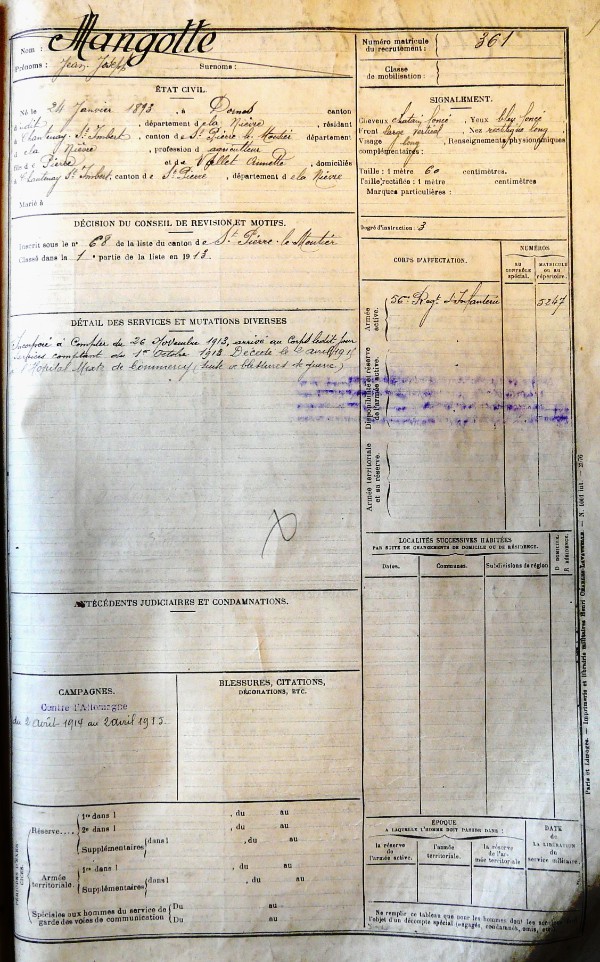 Nom : Mangotte
Prénoms : Jean Joseph Surnoms :
ÉTAT CIVIL.
Né le 24 Janvier 1893, à Dornes canton
dudit, département de la Nièvre, résidant
à Chantenay-St Imbert, canton de St Pierre le Moutier département
de la Nièvre, profession d agriculteur
fils de Pierre et de Vallet Annette, domiciliés
à Chantenay St Imbert, canton de St Pierre, département de la Nièvre
Marié à
DÉCISION DU CONSEIL DE REVISION ET MOTIFS.
Inscrit sous le n° 68 de la liste du canton de St Pierre-le-Moutier
Classé dans la 1e partie de la liste en 1913.
DÉTAIL DES SERVICES ET MUTATIONS DIVERSES
Incorporé à Compter du 26 Novembre 1913, arrivé au Corps ledit jour
services comptant du 1er Octobre 1913 Décédé le 2 avril 1915
à l'Hopital de Commercy (suite de blessures de guerre)
ANTÉCÉDENTS JUDICIAIRES ET CONDAMNATIONS.
CAMPAGNES.
Contre l'Allemagne
du 2 août 1914 au 2 avril 1915.
BLESSURES, CITATIONS,
DÉCORATIONS, ETC.
Réserve....
1re dans l , du au
2e dans l , du au
Supplémentaires dans l , du au
Armée
territoriale.
1re dans l , du au
Supplémentaires dans l , du au
Spéciales aux hommes du service de
garde des voies de communication
Du au
Du au
Numéro matricule
du recrutement : 361
Classe
de mobilisation :
SIGNALEMENT.
Cheveux chatain foncé, Yeux bleu foncé
Front large vertical, Nez rectiligne long,
Visage long, Renseignements physionomiques
complémentaires :
Taille : 1 mètre 60 centimètres.
Taille rectifiée : 1 mètre centimètres
Marques particulières :
Degré d'instruction : 3
CORPS D'AFFECTATION.
NUMÉROS
AU
CONTRÔLE
SPÉCIAL.
MATRICULE
OU AU
RÉPERTOIRE.
Armée
active.
56e Regt d'Infanterie 5247
Disponibilité et réserve
de l'armée active.
Armée territoriale
et sa réserve.
LOCALITÉS SUCCESSIVES HABITÉES
PAR SUITE DE CHANGEMENTS DE DOMICILE OU DE RÉSIDENCE.
Dates. Communes. Subdivisions de région
D DOMICILE.
R RÉSIDENCE.
ÉPOQUE
A LAQUELLE L'HOMME DOIT PASSER DANS :
la réserve
de
l'armée active.
l'armée
territoriale.
la réserve
de l'ar-
mée territoriale.
DATE
de
LA LIBÉRATION
du
service militaire.
Ne remplir ce tableau que pour les hommes dont les services
l'objet d'un décompte spécial (engagés, condamnés, omis, etc.
Paris et Limoges. — Imprimerie et librairie militaires Henri CHARLES-LAVAUZELLE